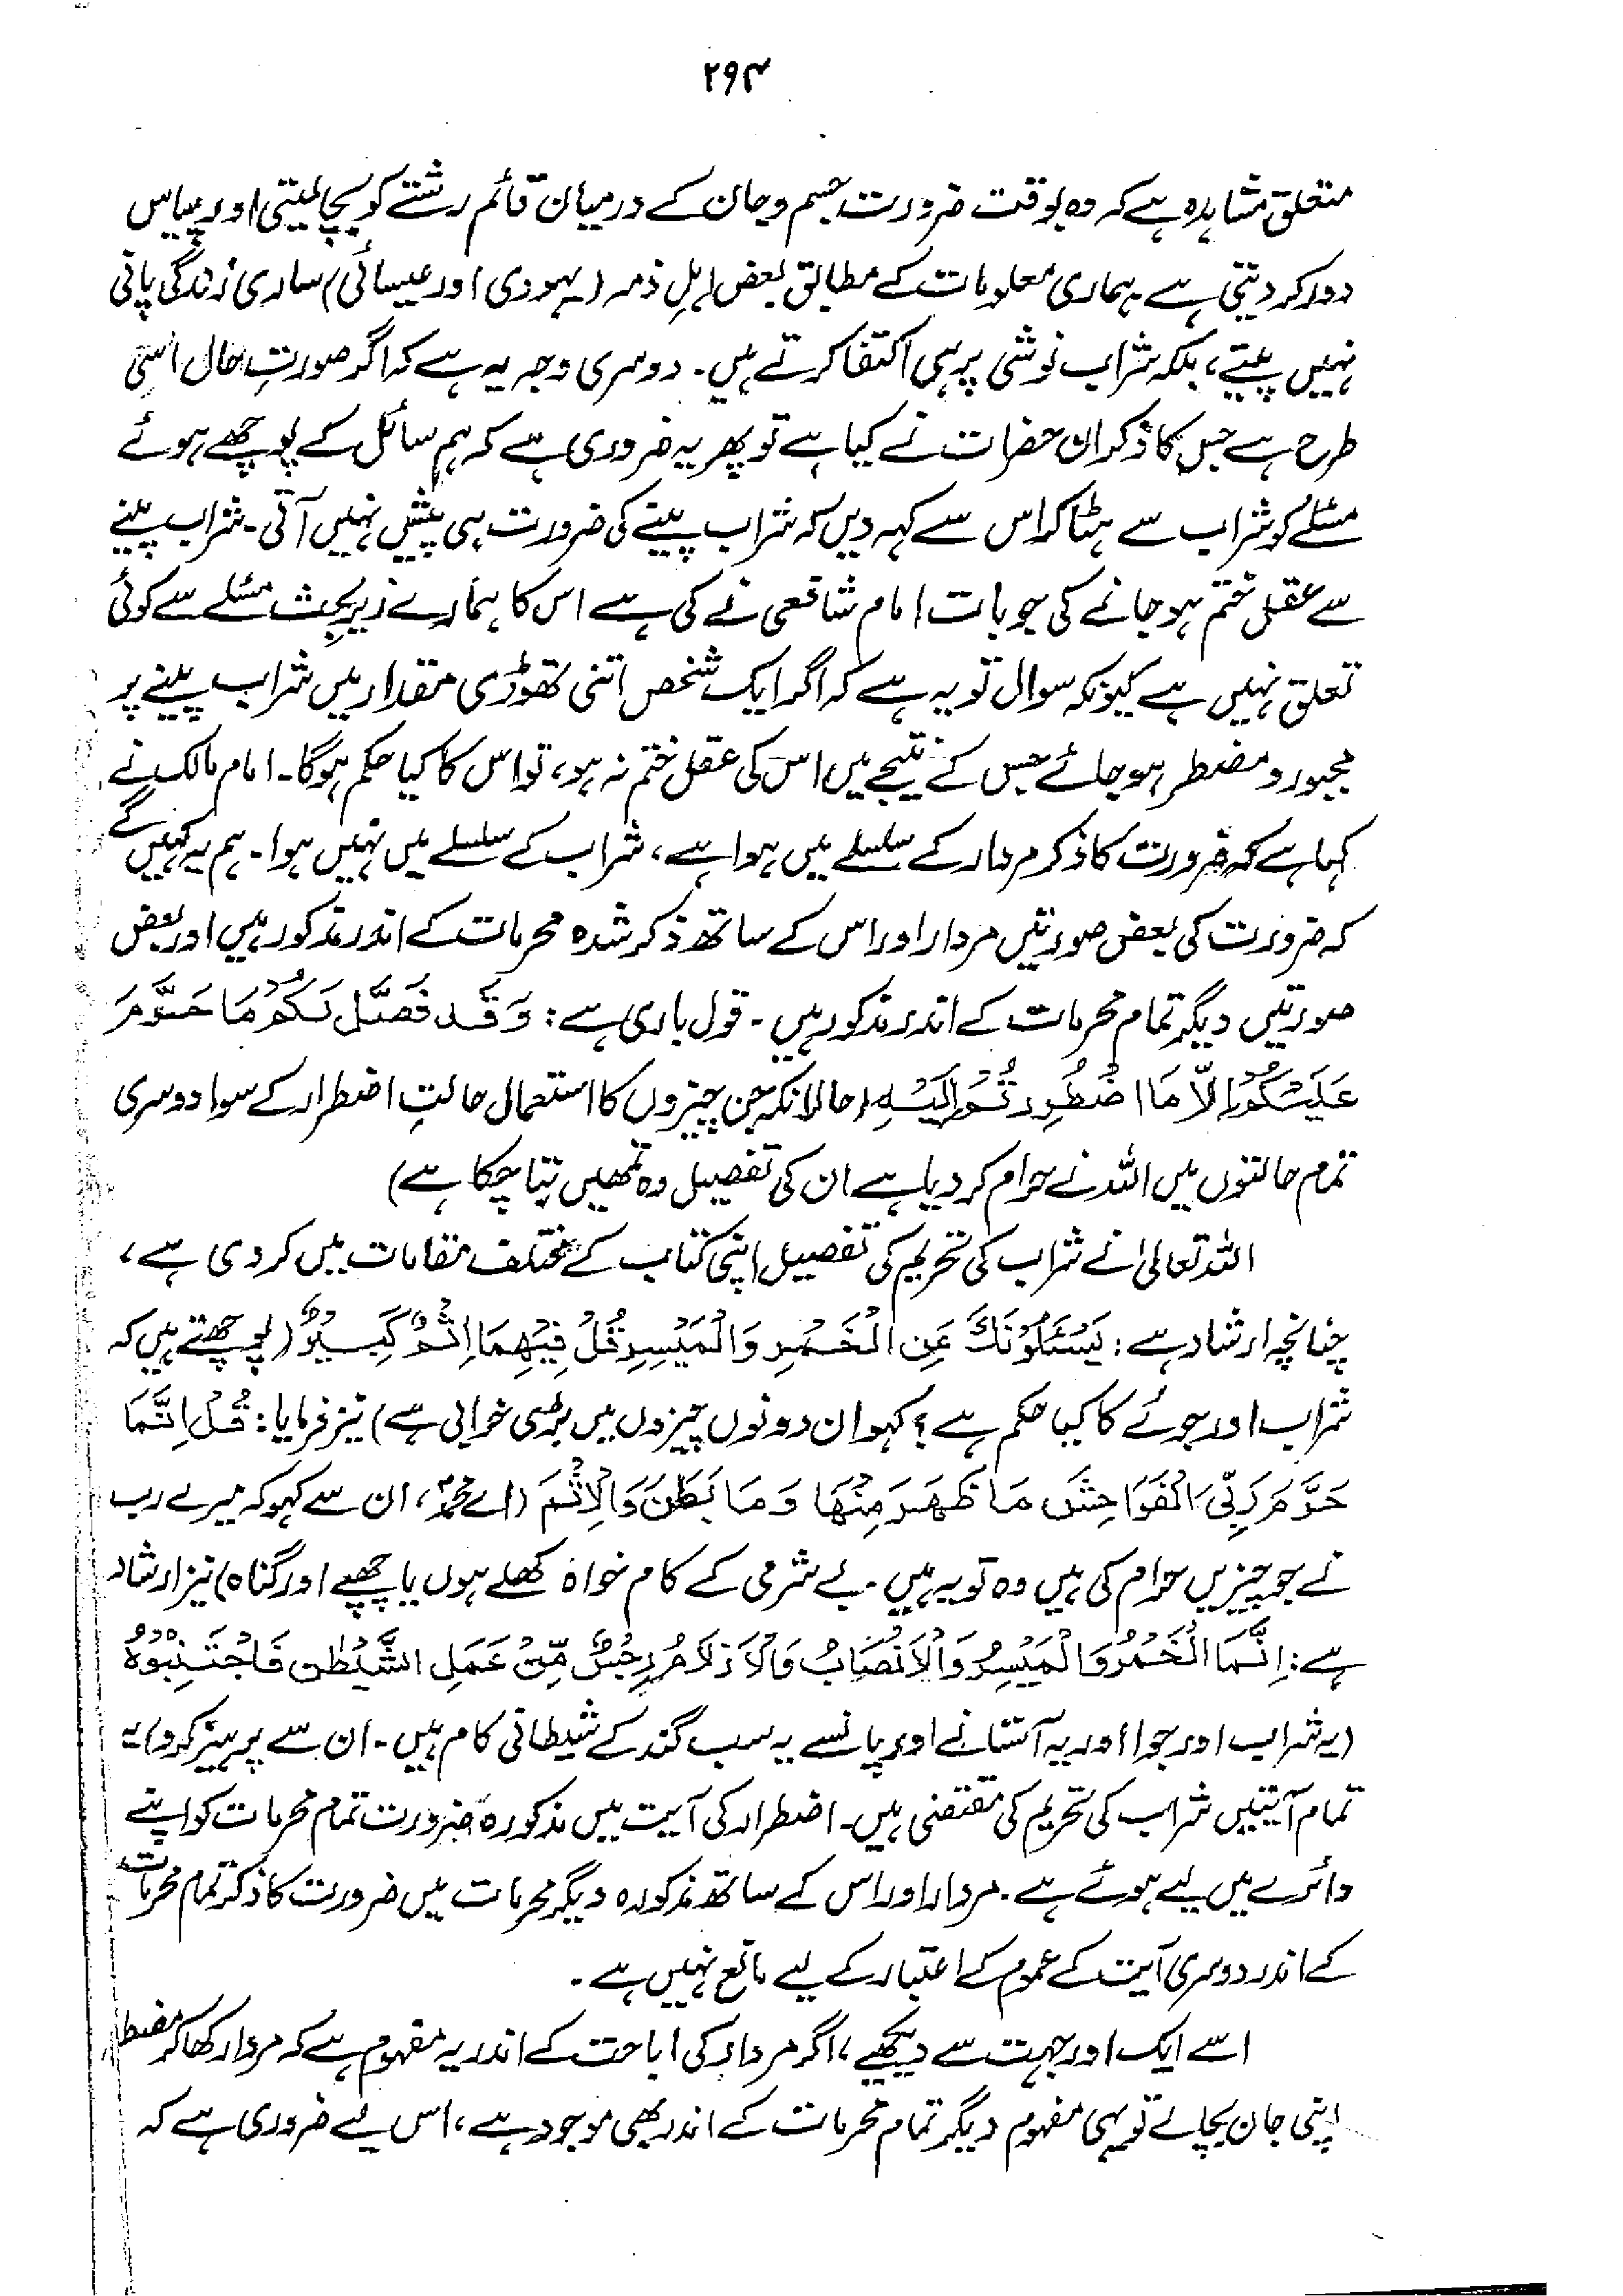 ۲۹۴
متعلق مشاہدہ ہے کہ وہ بوقت ضرورت جسم و جان کے درمیان قائم رشتے کو بچالیتی اور پیاس
دور کر دیتی ہے۔ ہماری معلومات کے مطابق بعض اہلِ ذمہ (یہودی اور عیسائی) ساری زندگی پانی
نہیں پیتے، بلکہ شراب نوشی پر ہی اکتفا کرتے ہیں۔ دوسری وجہ یہ ہے کہ اگر صورتِ حال اسی
طرح ہے جس کا ذکر ان حضرات نے کیا ہے تو پھر یہ ضروری ہے کہ ہم سائل کے پوچھے ہوئے
مسئلے کو شراب سے ہٹا کر اس سے کہہ دیں کہ شراب پینے کی ضرورت ہی پیش نہیں آتی۔ شراب پینے
سے عقل ختم ہو جانے کی جو بات امام شافعی نے کی ہے اس کا ہمارے زیرِ بحث مسئلے سے کوئی
تعلق نہیں ہے کیونکہ سوال تو یہ ہے کہ اگر ایک شخص اتنی تھوڑی مقدار میں شراب پینے پر
مجبور و مضطر ہو جائے جس کے نتیجے میں اس کی عقل ختم نہ ہو، تو اس کا کیا حکم ہوگا۔ امام مالک نے
کہا ہے کہ ضرورت کا ذکر مردار کے سلسلے میں ہوا ہے، شراب کے سلسلے میں نہیں ہوا۔ ہم یہ کہیں گے
کہ ضرورت کی بعض صورتیں مردار اور اس کے ساتھ ذکر شدہ محرمات کے اندر مذکور ہیں اور بعض
صورتیں دیگر تمام محرمات کے اندر مذکور ہیں۔ قول باری ہے: وَقَدْ فَصَّلَ لَكُمْ مَا حَرَّمَ
عَلَيْكُمْ اِلَّا مَا اضْطُرِرْتُمْ اِلَيْهِ (حالانکہ جن چیزوں کا استعمال حالتِ اضطرار کے سوا دوسری
تمام حالتوں میں اللہ نے حرام کر دیا ہے ان کی تفصیل وہ تمھیں بتا چکا ہے)
اللہ تعالیٰ نے شراب کی تحریم کی تفصیل اپنی کتاب کے مختلف مقامات میں کر دی ہے،
چنانچہ ارشاد ہے: يَسْئَلُوْنَكَ عَنِ الْخَمْرِ وَالْمَيْسِرِ قُلْ فِيْهِمَا اِثْمٌ كَبِيْرٌ (پوچھتے ہیں کہ
شراب اور جوئے کا کیا حکم ہے؟ کہو ان دونوں چیزوں میں بڑی خرابی ہے) نیز فرمایا: قُلْ اِنَّمَا
حَرَّمَ رَبِّیَ الْفَوَاحِشَ مَا ظَهَرَ مِنْهَا وَمَا بَطَنَ وَالْاِثْمَ (اے محمدؐ، ان سے کہو کہ میرے رب
نے جو چیزیں حرام کی ہیں وہ تو یہ ہیں۔ بے شرمی کے کام خواہ کھلے ہوں یا چھپے اور گناہ) نیز ارشاد
ہے: اِنَّمَا الْخَمْرُ وَالْمَيْسِرُ وَالْاَنْصَابُ وَالْاَزْلَامُ رِجْسٌ مِّنْ عَمَلِ الشَّيْطٰنِ فَاجْتَنِبُوْهُ
(یہ شراب اور جوا اور یہ آستانے اور پانسے یہ سب گندے شیطانی کام ہیں۔ ان سے پرہیز کرو) یہ
تمام آیتیں شراب کی تحریم کی مقتضی ہیں۔ اضطرار کی آیت میں مذکورہ ضرورت تمام محرمات کو اپنے
دائرے میں لیے ہوئے ہے۔ مردار اور اس کے ساتھ مذکورہ دیگر محرمات میں ضرورت کا ذکر تمام محرمات
کے اندر دوسری آیت کے عموم کے اعتبار کے لیے مانع نہیں ہے۔
اسے ایک اور جہت سے دیکھیے، اگر مردار کی اباحت کے اندر یہ مفہوم ہے کہ مردار کھا کر مضطر
اپنی جان بچالے تو یہی مفہوم دیگر تمام محرمات کے اندر بھی موجود ہے، اس لیے ضروری ہے کہ